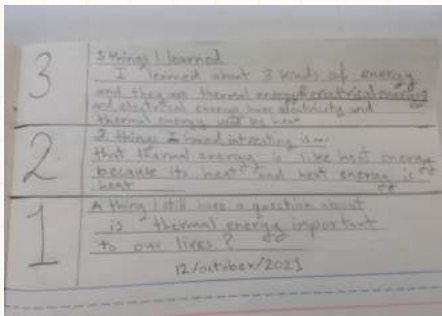 3
3 things I learned
I learned about 3 kinds of energy
and they are thermal energy & electrical energy
and electrical energy have electricity and
thermal energy used as heat
2
2 things I found intresting is...
that thermal energy is like heat energy
because its heat and heat energy is
heat
1
A thing I still have a question about
is thermal energy important
to our lives?
12/october/2023